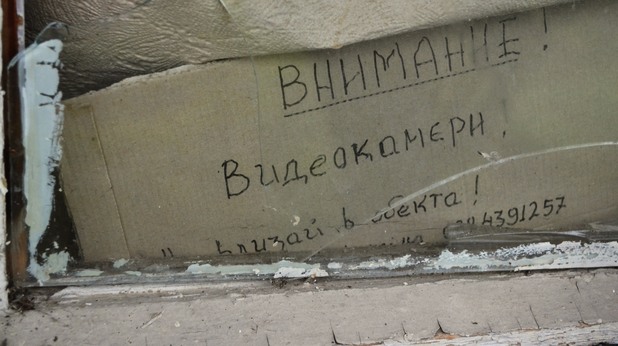 ВНИМАНИЕ!
Видеокамери!
влизай в обекта!
4391257